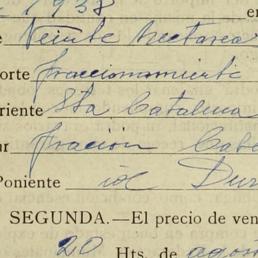 1938 en
Veinte hectareas
orte fraccionamiento
riente Sta Catalina
ur fracción Cab
Poniente id Dur
SEGUNDA.—El precio de ven
20 Hts. de agos